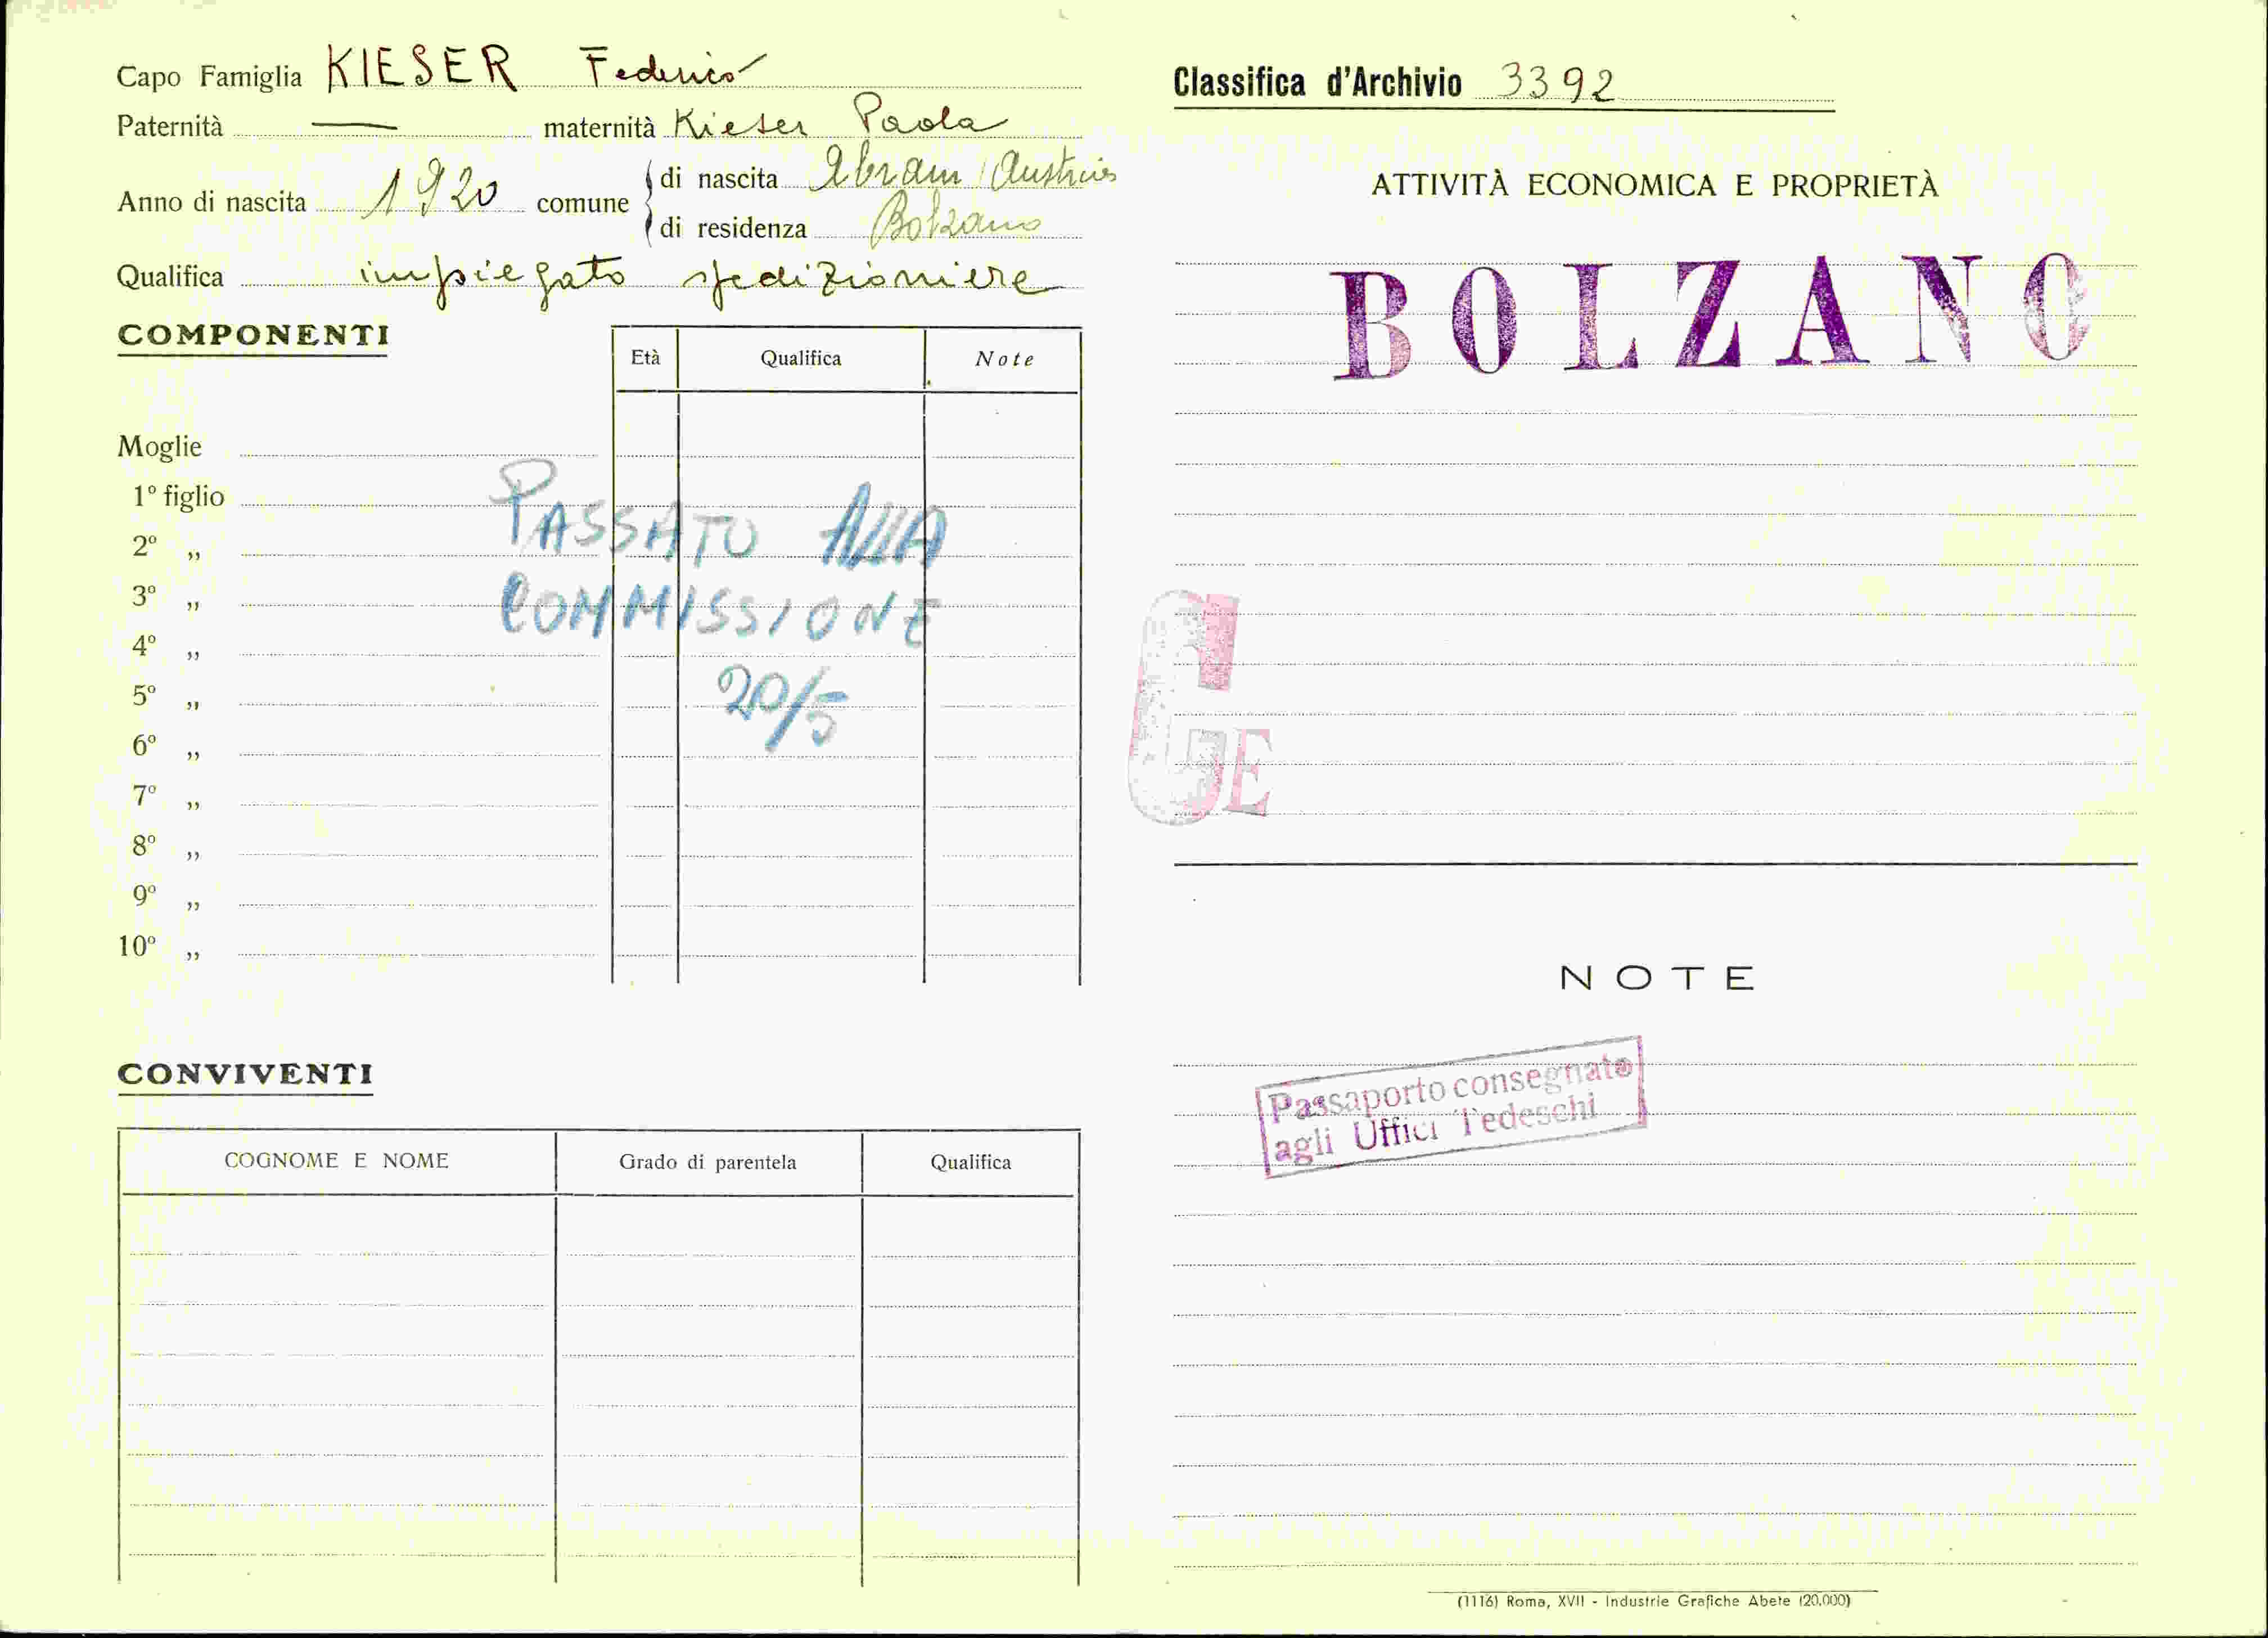 Capo Famiglia KIESER Federico
Paternità — maternità Kieser Paola
Anno di nascita 1920 comune
di nascita Abram (Austria)
di residenza Bolzano
Qualifica impiegato spedizioniere
COMPONENTI
Età Qualifica Note
Moglie
1º figlio
2º „
3º „
4º „
5º „
6º „
7º „
8º „
9º „
10º „
PASSATO ALLA
COMMISSIONE
20/5
CONVIVENTI
COGNOME E NOME Grado di parentela Qualifica
Classifica d'Archivio 3392
ATTIVITÀ ECONOMICA E PROPRIETÀ
BOLZANO
NOTE
Passaporto consegnato
agli Uffici Tedeschi
(1116) Roma, XVII - Industrie Grafiche Abete (20.000)